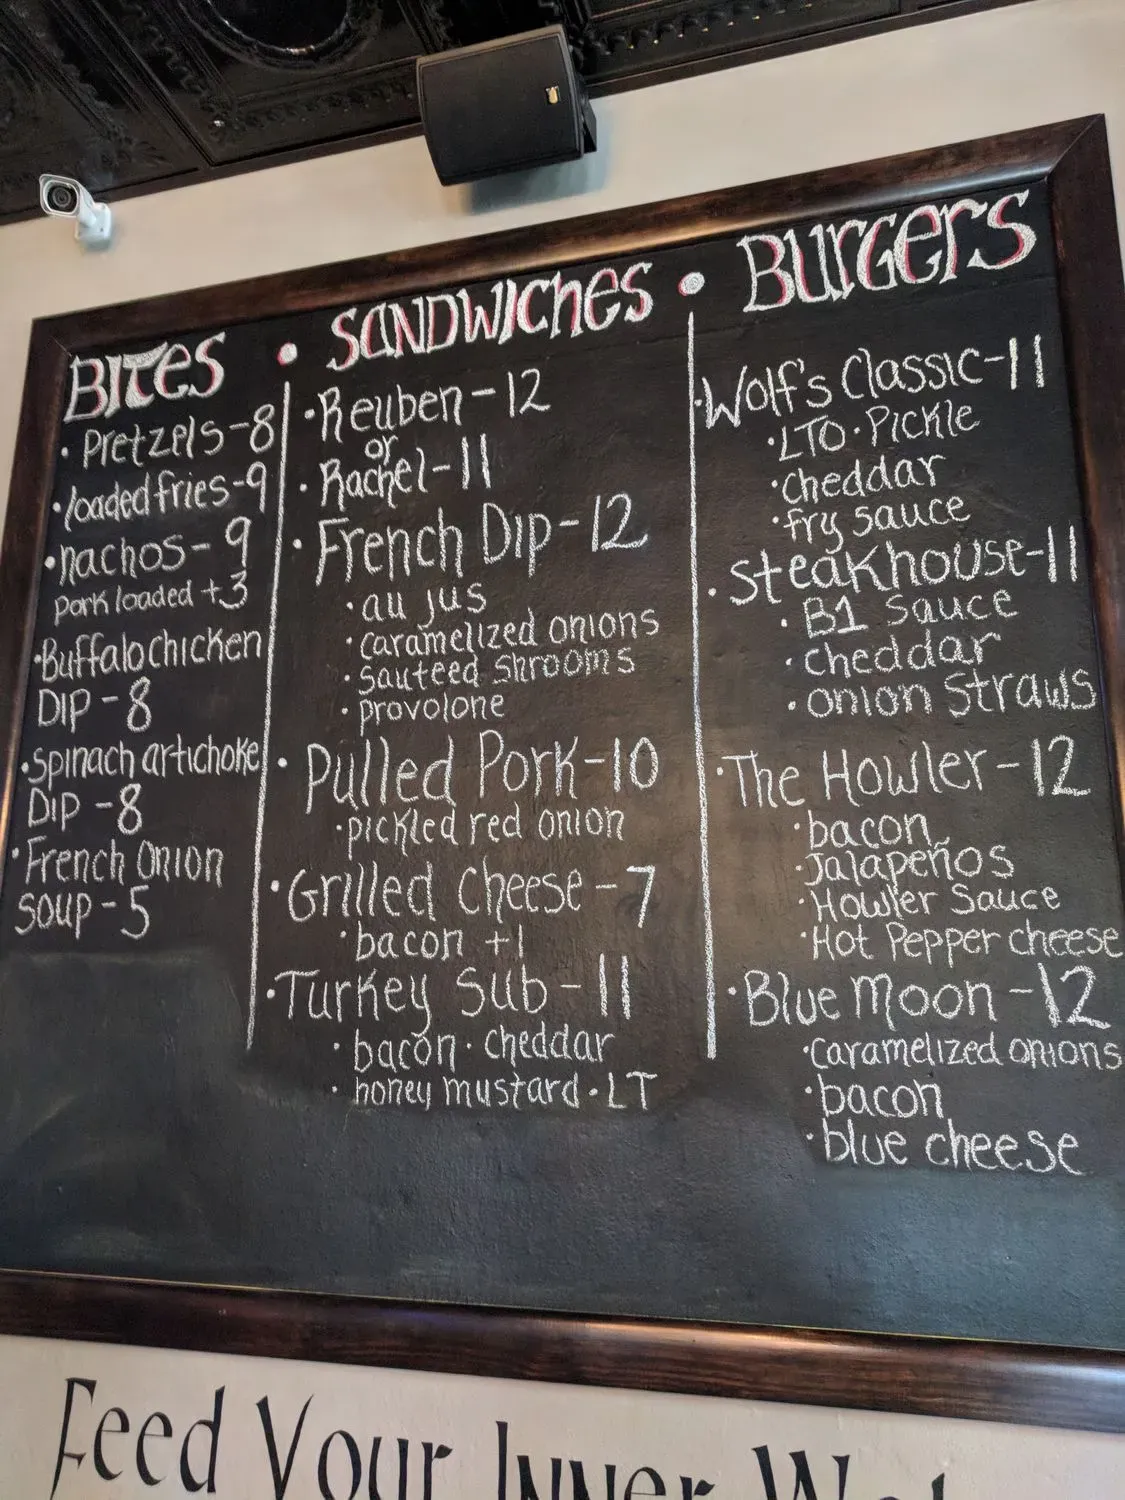 BITES • SANDWICHES • BURGERS
• Pretzels - 8
• loaded fries - 9
• nachos - 9
pork loaded +3
• Buffalo chicken
Dip - 8
• Spinach artichoke
Dip - 8
• French Onion
Soup - 5
• Reuben - 12
or
• Rachel - 11
• French Dip - 12
• au jus
• caramelized onions
• sauteed shrooms
• provolone
• Pulled Pork - 10
• pickled red onion
• Grilled Cheese - 7
• bacon +1
• Turkey Sub - 11
• bacon • cheddar
• honey mustard • LT
• Wolf's Classic - 11
• LTO • Pickle
• cheddar
• fry sauce
• Steakhouse - 11
• B1 Sauce
• cheddar
• onion straws
• The Howler - 12
• bacon
• Jalapeños
• Howler Sauce
• Hot Pepper cheese
• Blue Moon - 12
• caramelized onions
• bacon
• blue cheese
Feed Your Inner